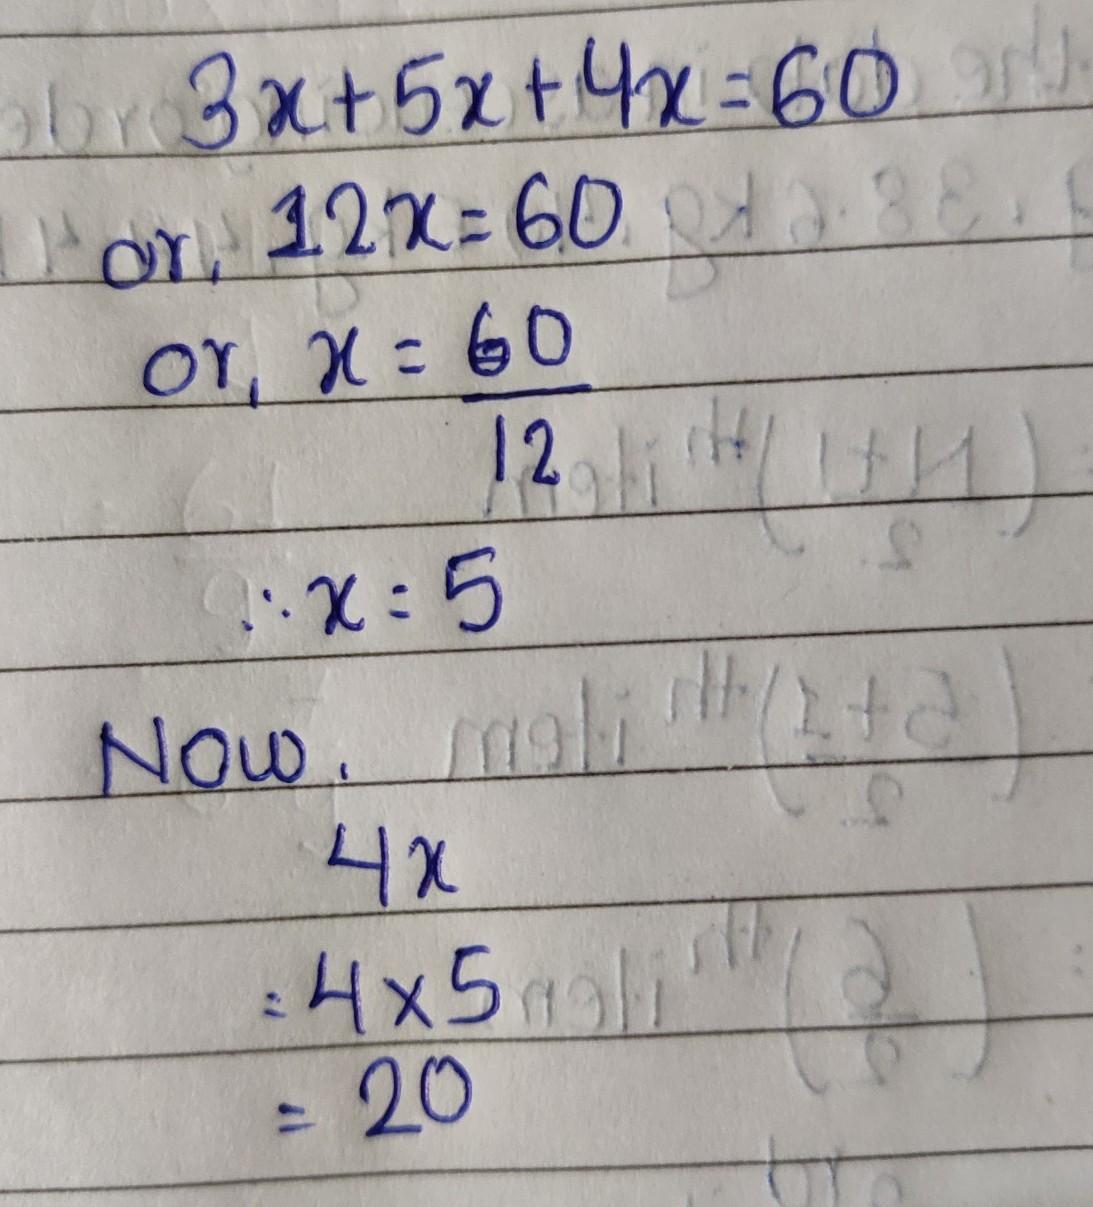 3x+5x+4x=60
or, 12x=60
or, x = 60/12
∴ x = 5
Now,
4x
= 4×5
= 20